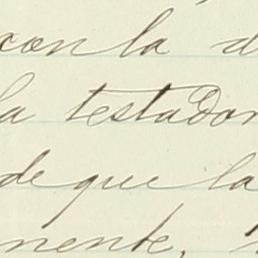 con la d
la testador
de que la
nente,